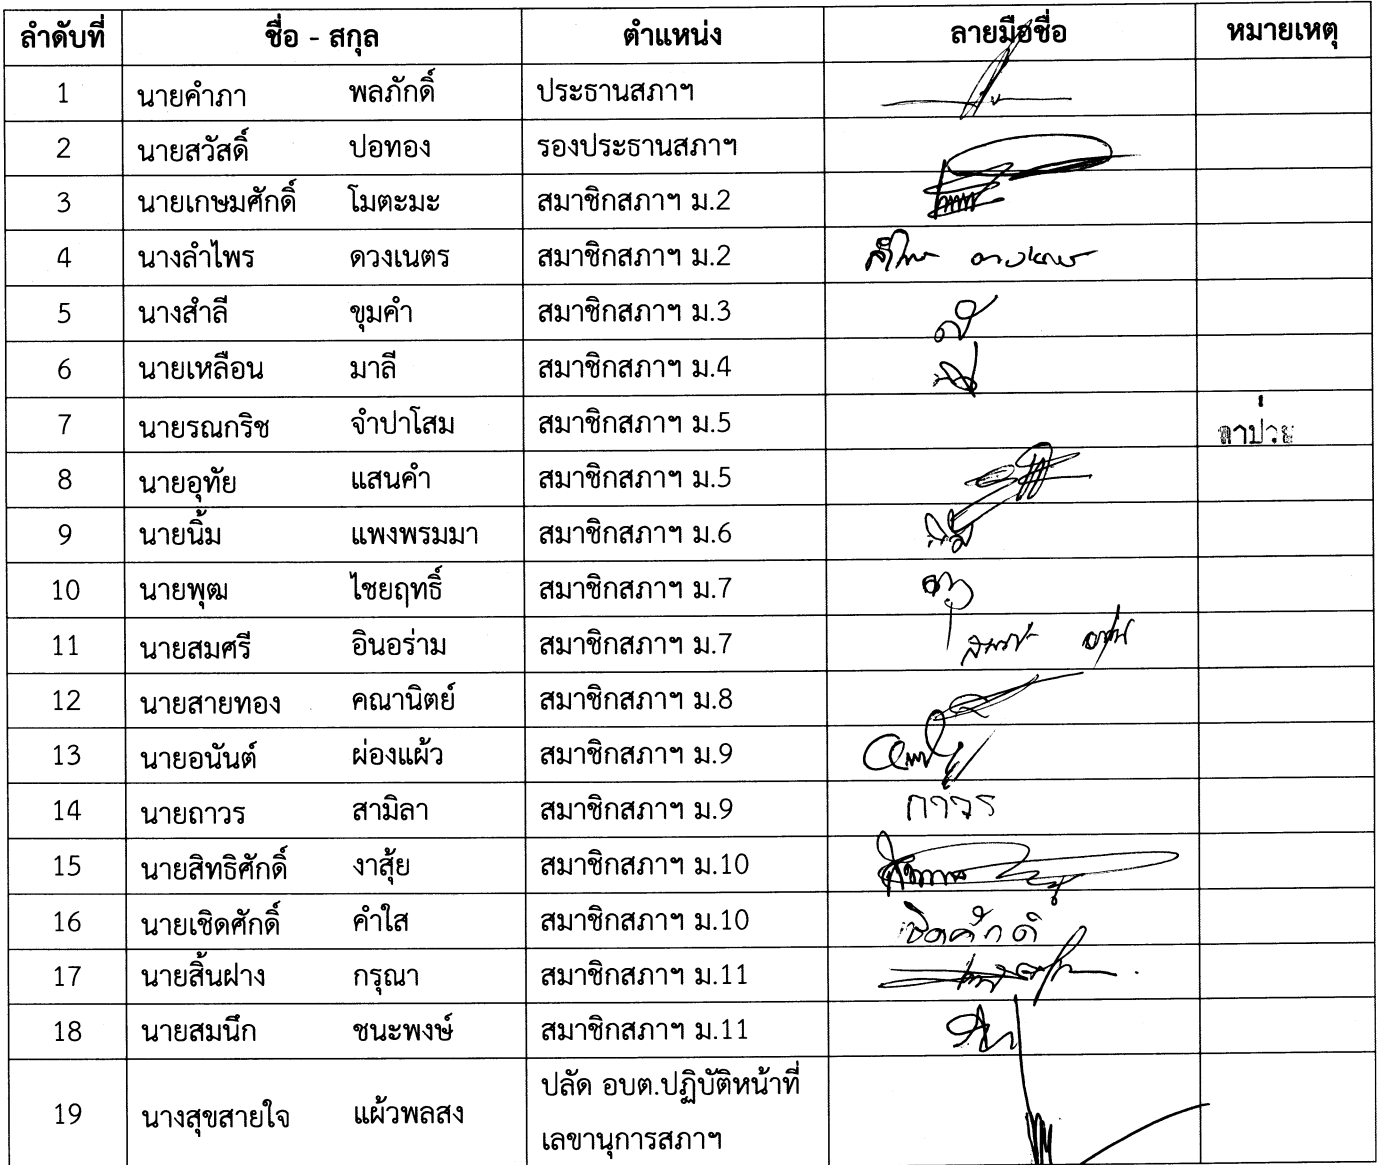 ลำดับที่ ชื่อ - สกุล ตำแหน่ง ลายมือชื่อ หมายเหตุ
1 นายคำภา พลภักดิ์ ประธานสภาฯ
2 นายสวัสดิ์ ปอทอง รองประธานสภาฯ
3 นายเกษมศักดิ์ โมตะมะ สมาชิกสภาฯ ม.2
4 นางลำไพร ดวงเนตร สมาชิกสภาฯ ม.2
5 นางสำลี ขุมคำ สมาชิกสภาฯ ม.3
6 นายเหลือน มาลี สมาชิกสภาฯ ม.4
7 นายรณกริช จำปาโสม สมาชิกสภาฯ ม.5 ลาป่วย
8 นายอุทัย แสนคำ สมาชิกสภาฯ ม.5
9 นายนิ้ม แพงพรมมา สมาชิกสภาฯ ม.6
10 นายพุฒ ไชยฤทธิ์ สมาชิกสภาฯ ม.7
11 นายสมศรี อินอร่าม สมาชิกสภาฯ ม.7
12 นายสายทอง คณานิตย์ สมาชิกสภาฯ ม.8
13 นายอนันต์ ผ่องแผ้ว สมาชิกสภาฯ ม.9
14 นายถาวร สามิลา สมาชิกสภาฯ ม.9 ถาวร
15 นายสิทธิศักดิ์ งาสุ้ย สมาชิกสภาฯ ม.10
16 นายเชิดศักดิ์ คำใส สมาชิกสภาฯ ม.10
17 นายสิ้นฝาง กรุณา สมาชิกสภาฯ ม.11
18 นายสมนึก ชนะพงษ์ สมาชิกสภาฯ ม.11
19 นางสุขสายใจ แผ้วพลสง ปลัด อบต.ปฏิบัติหน้าที่
เลขานุการสภาฯ